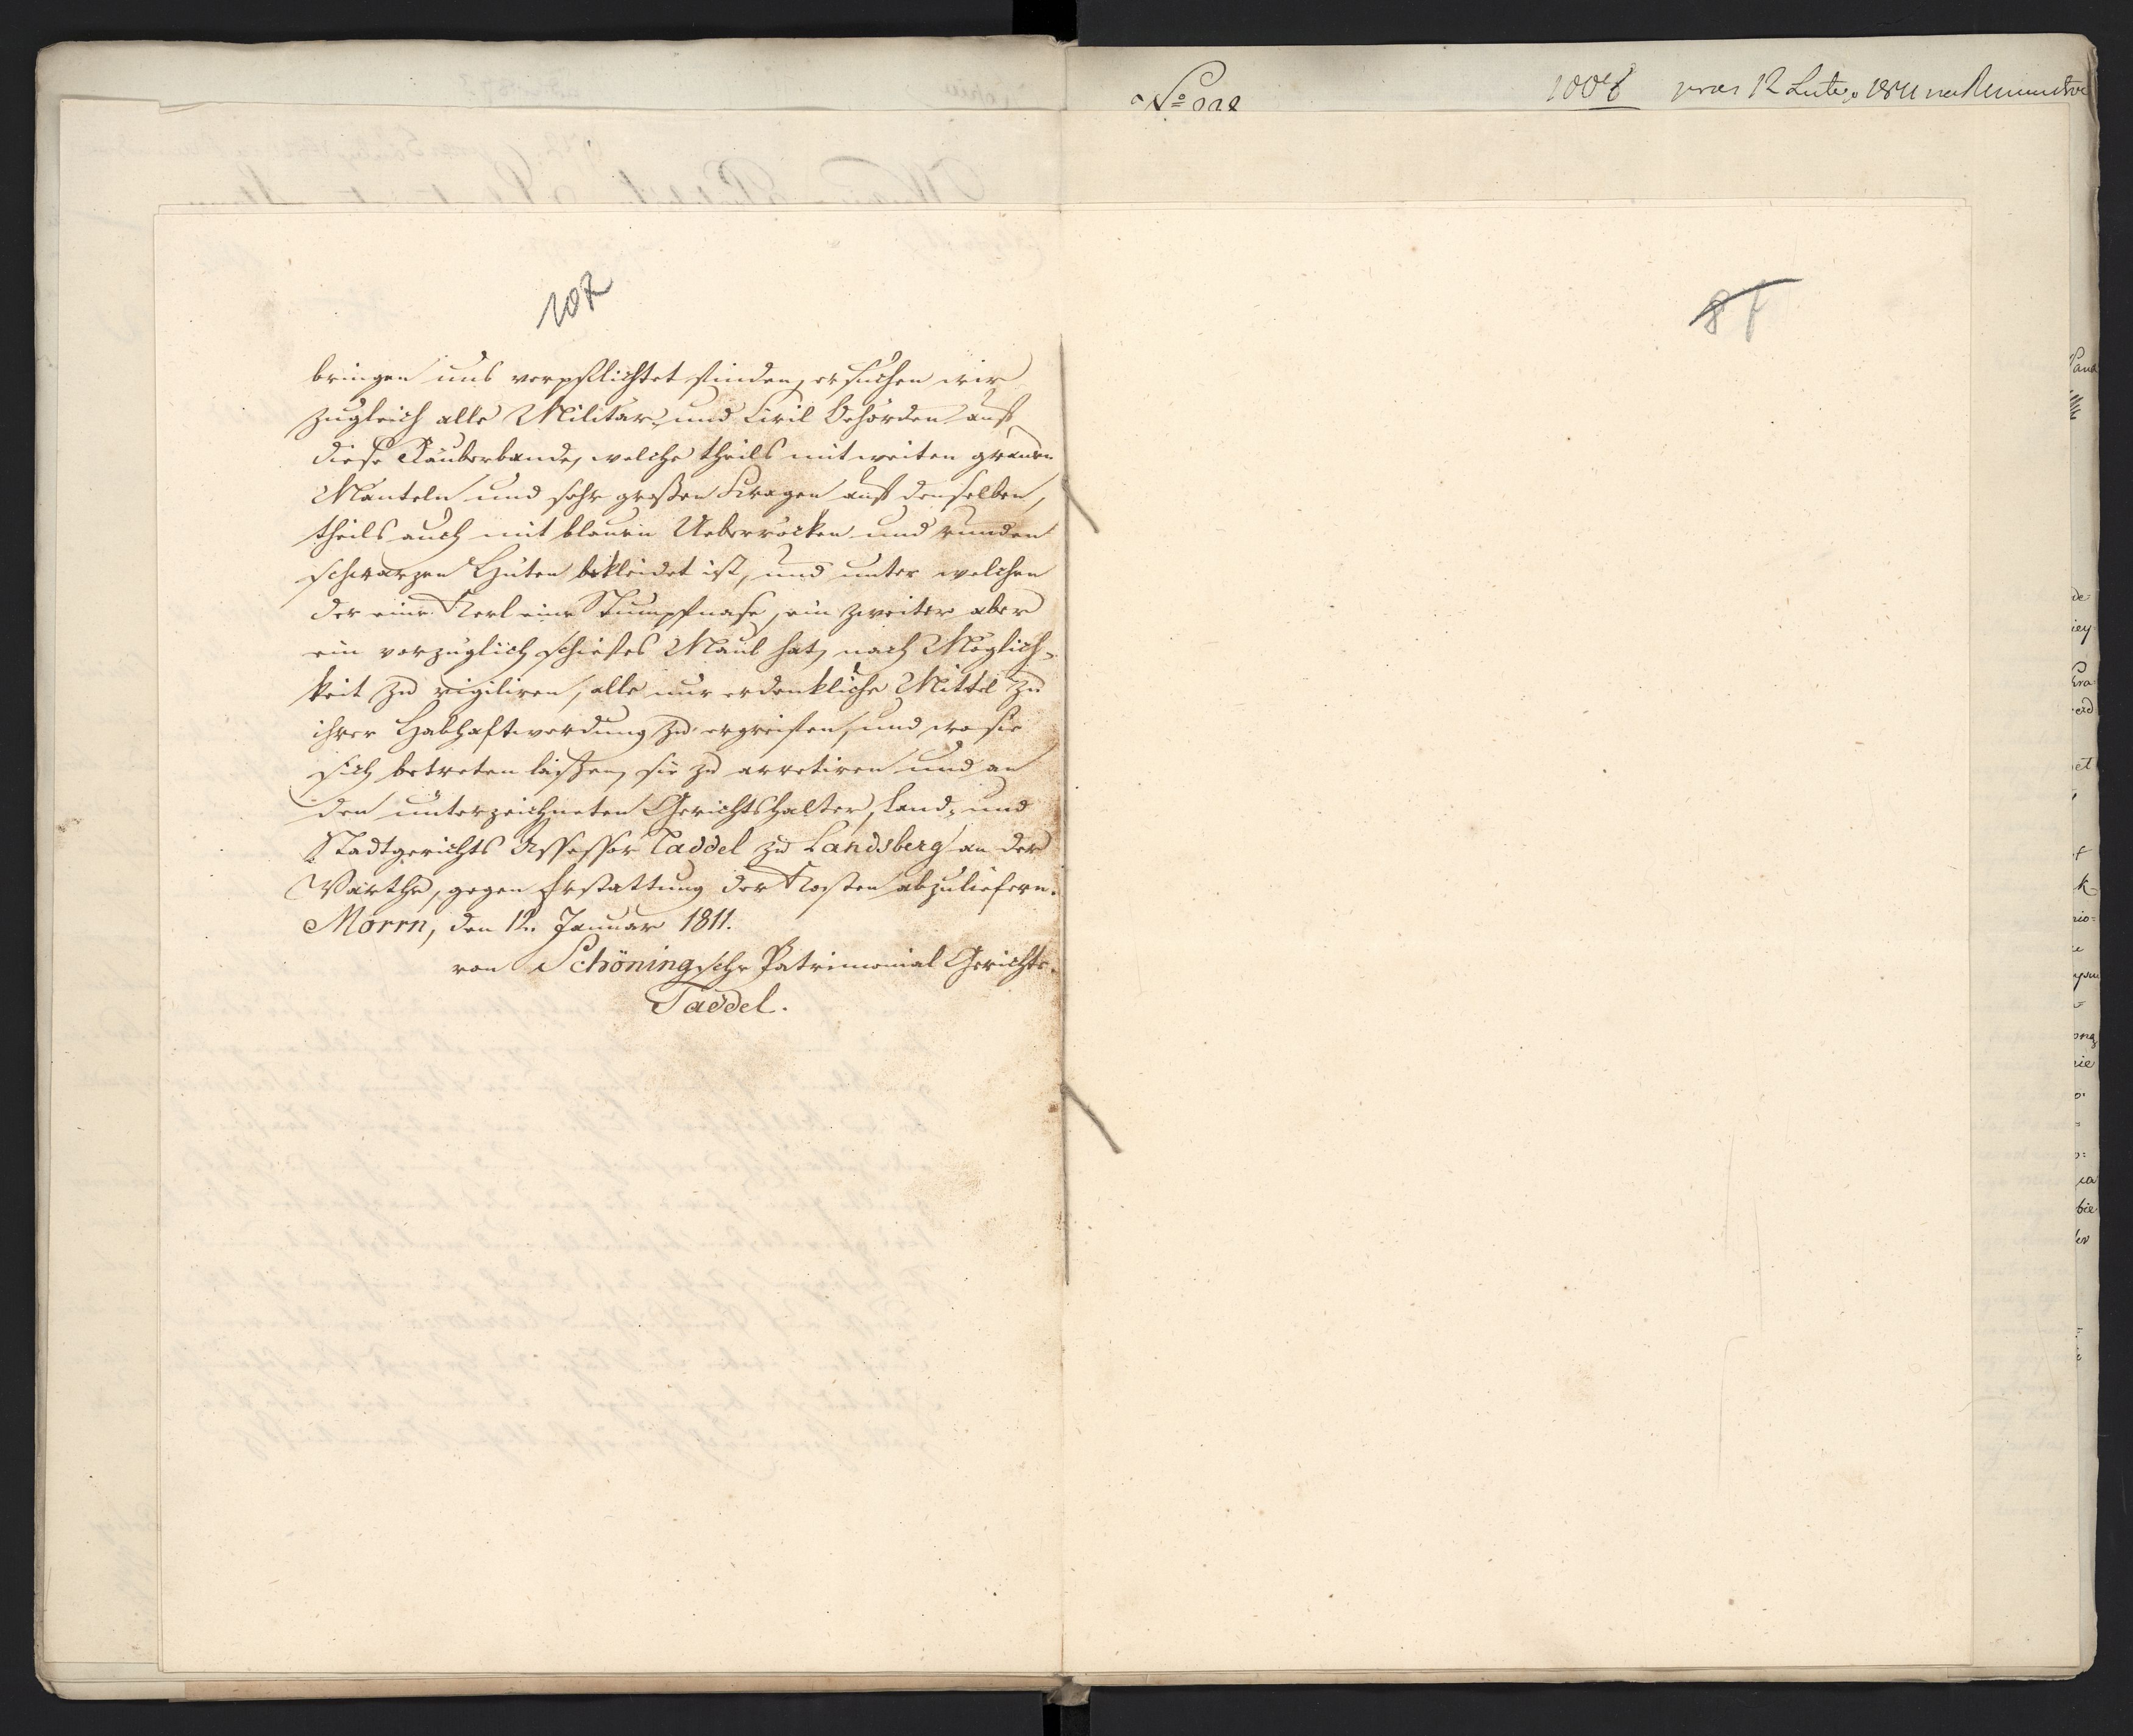 107
bringen uns verpflichtet finden, ersuchen wir
zugleich alle Militär- und Civil Behörden auf
diese Räuberbande, welche theils mit weiten grauen
Mänteln und sehr großen Kragen auf denselben,
theils auch mit blauen Ueberröcken und runden
schwarzen Hüten bekleidet ist, und unter welchen
der eine Kerl eine Stumpfnase, ein zweiter aber
ein vorzüglich schiefes Maul hat, nach Möglich-
keit zu vigiliren, alle nur erdenkliche Mittel zu
ihrer Habhaftwerdung zu ergreifen, und wo sie
sich betreten laßen, sie zu arretiren und an
den unterzeichneten Gerichtshalter, Land- und
Stadtgerichts Assessor Taddel zu Landsberg an der
Warthe, gegen Erstattung der Kosten abzuliefern.
Morrn, den 12. Januar 1811.
von Schöningsche Patrimonial Gerichte.
Taddel.
No
12 Lutego 1811